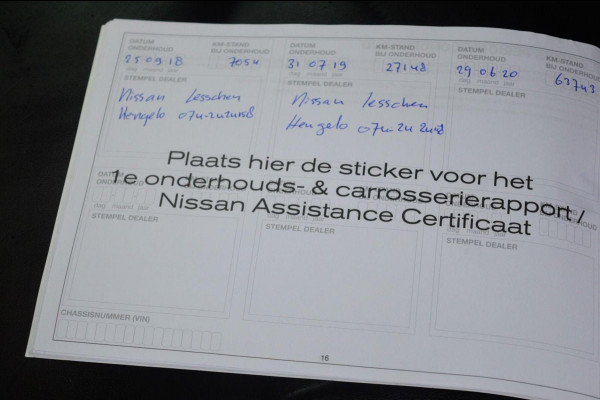 DATUM ONDERHOUD KM-STAND BIJ ONDERHOUD
25 09 18 7054
dag maand jaar
STEMPEL DEALER
Nissan Lesschen
Hengelo
DATUM ONDERHOUD KM-STAND BIJ ONDERHOUD
31 07 19 27148
dag maand jaar
STEMPEL DEALER
Nissan Lesschen
Hengelo
DATUM ONDERHOUD KM-STAND BIJ ONDERHOUD
29 06 20 63743
dag maand jaar
STEMPEL DEALER
Plaats hier de sticker voor het
1e onderhouds- & carrosserierapport /
Nissan Assistance Certificaat
dag maand jaar
STEMPEL DEALER
STEMPEL DEALER
STEMPEL DEALER
CHASSISNUMMER (VIN)
16